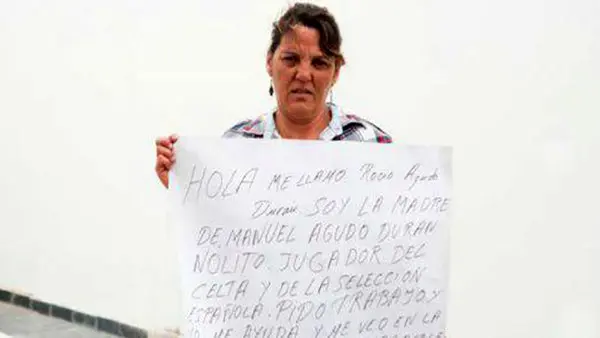 HOLA ME LLAMO Rocio Agudo
Durán. SOY LA MADRE
DE, MANUEL AGUDO DURAN
NOLITO. JUGADOR DEL
CELTA Y DE LA SELECCION
ESPAÑOLA. PIDO TRABAJO, Y
ME AYUDA Y ME VEO EN LA